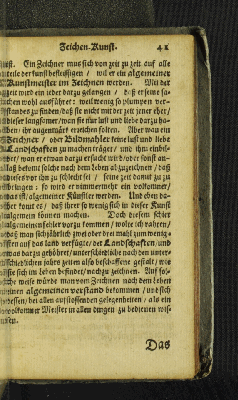 Zeichen-Kunst. 41
Ein Zeichner mus sich von zeit zu zeit auf alle
teile der kunst befleissigen / wil er ein allgemeiner
Kunstmeister im Zeichnen werden. Mit der
zeit wird ein jeder darzu gelangen / daß er seine sa-
chen wohl ausführet: weil wenig so plumpen ver-
standes zu finden / daß sie nicht mit der zeit jener eher /
dieser langsamer / wan sie nur lust und liebe darzu ha-
ben / ihr augenmärk erreichen solten. Aber wan ein
Zeichner / oder Bildmahler seine lust und liebe
Landschaften zu machen träget / und ihm einbil-
det / wan er etwan darzu ersucht wird / oder sonst an-
laß bekomt solche nach dem leben abzuzeichnen / daß
dieses vor ihn zu schlecht sei / seine zeit damit zuzu-
bringen: so wird er nimmermehr ein volkomner /
/ allgemeiner Künstler werden. Und eben da-
her komt es / daß ihrer so wenig sich in dieser Kunst
allgemein können machen. Doch diesem
allgemeinen fehler vorzukommen / wolte ich rahten /
daß man sich jährlich zwei oder drei mahl zum wenig-
sten auf das land verfügte / der Landschaften, und
etwan darzu gehörher / unterschiedliche nach den unter-
schiedlichen jahrs zeiten also beschaffene gestalt / wie
sie sich im leben befindet / nachzuzeichnen. Auf sol-
che weise würde man vom Zeichnen nach dem leben
einen allgemeinen verstand bekommen / und sich
dessen / bei allen aufstossenden gelegenheiten / als ein
volkomner Meister in allen dingen zu bedienen wis-
sen.
Das